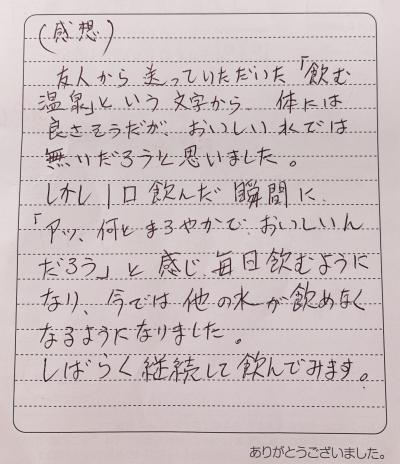 (感想)
友人から送っていただいた「飲む
温泉」という文字から、体には
良さそうだが、おいしい水では
無いだろうと思いました。
しかし1口飲んだ瞬間に、
「アッ、何とまろやかで、おいしいん
だろう」と感じ、毎日飲むように
なり、今では他の水が飲めなく
なるようになりました。
しばらく継続して飲んでみます。
ありがとうございました。